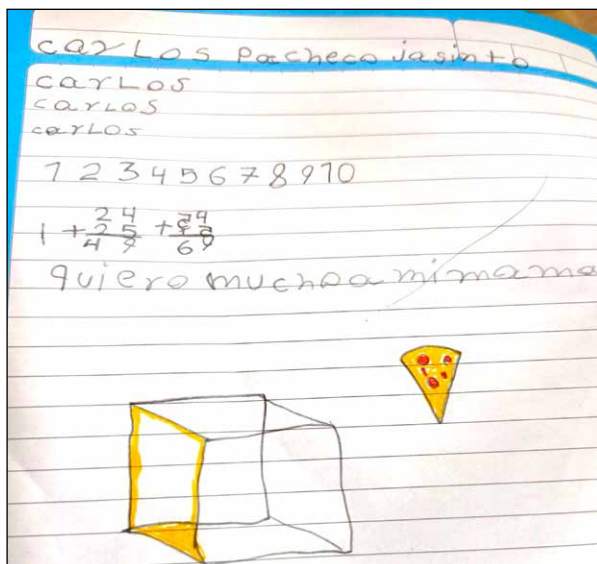 carLos Pacheco jasinto
carLos
carLos
carLos
1 2 3 4 5 6 7 8 9 10
24
1 + 25 +
49 69
quiero mucho a mi mama